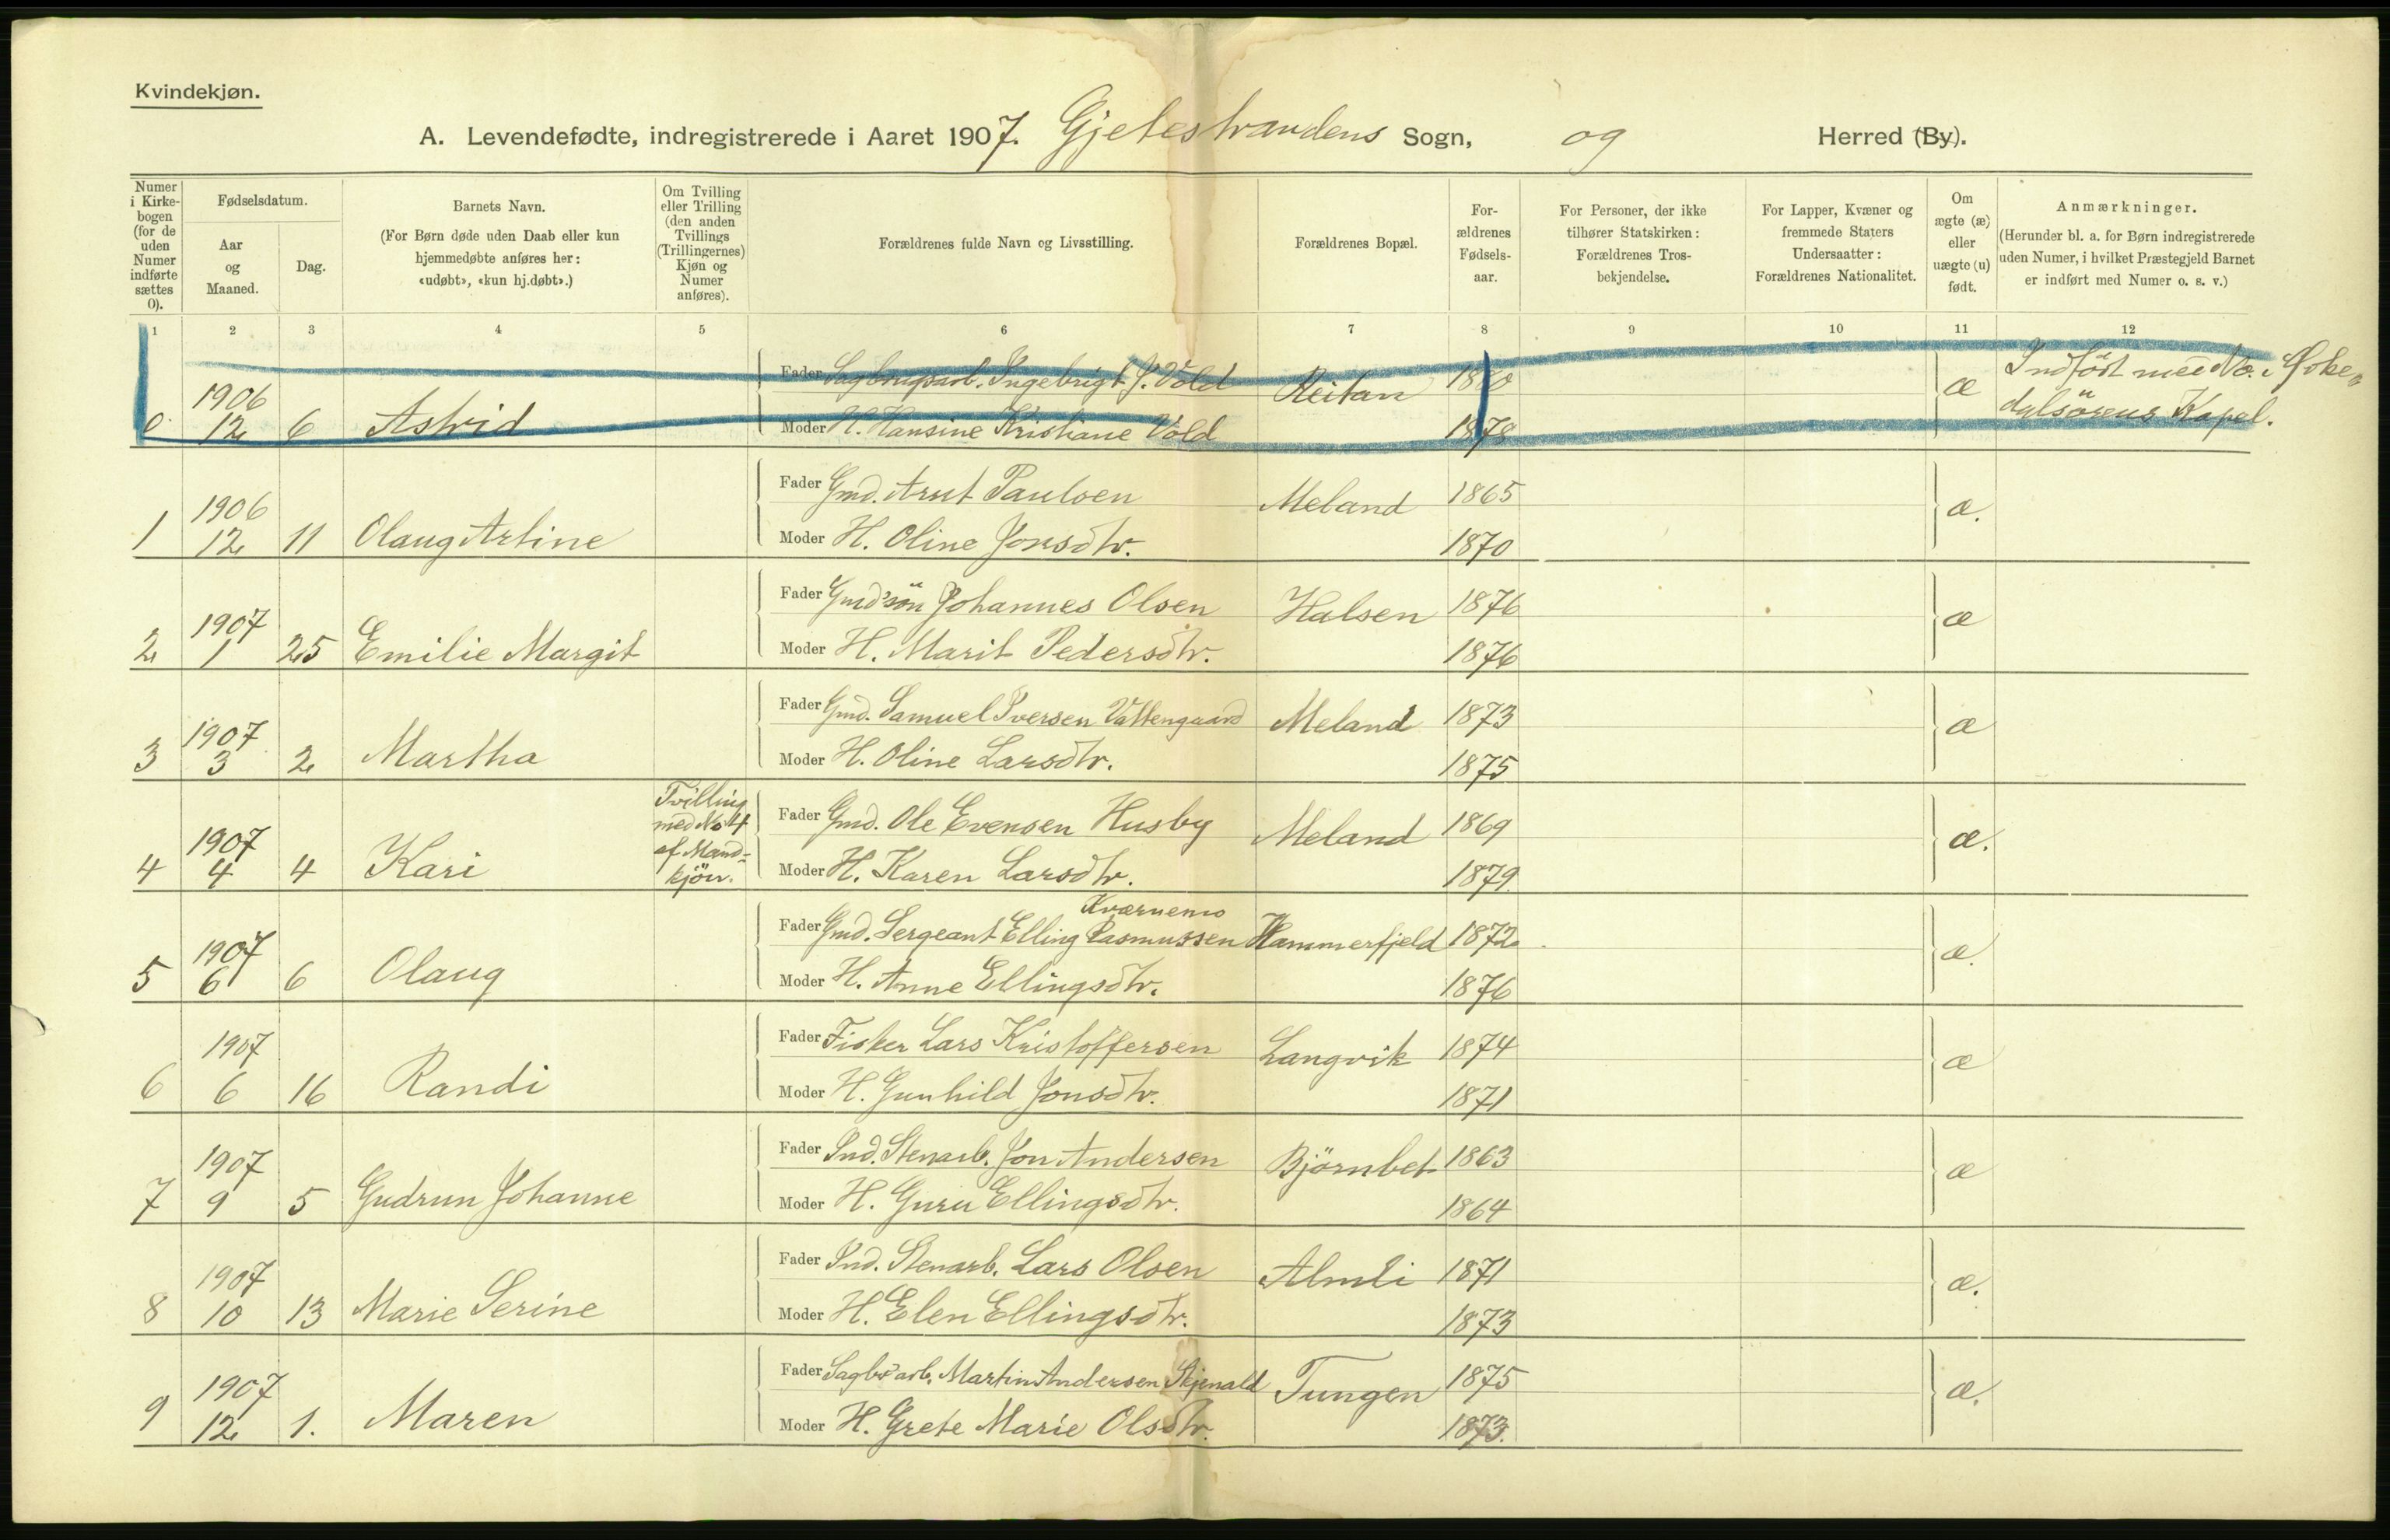 Kvindekjøn.
A. Levendefødte, indregistrerede i Aaret 1907. Gjelestrandens Sogn, og Herred (By).
Numer i Kirkebogen (for de uden Numer indførte sættes 0).
Fødselsdatum.
Aar og Maaned.
Dag.
Barnets Navn.
(For Børn døde uden Daab eller kun hjemmedøbte anføres her: «udøbt», «kun hj.døbt».)
Om Tvilling eller Trilling (den anden Tvillings (Trillingernes) Kjøn og Numer anføres).
Forældrenes fulde Navn og Livsstilling.
Forældrenes Bopæl.
For-ældrenes Fødsels-aar.
For Personer, der ikke tilhører Statskirken: Forældrenes Tros-bekjendelse.
For Lapper, Kvæner og fremmede Staters Undersaatter: Forældrenes Nationalitet.
Om ægte (æ) eller uægte (u) født.
Anmærkninger.
(Herunder bl. a. for Børn indregistrerede uden Numer, i hvilket Præstegjeld Barnet er indført med Numer o. s. v.)
1 2 3 4 5 6 7 8 9 10 11 12
0 1906 12 6 Astrid
Fader Sagbrugsarb. Ingebrigt J. Vold Reitan 1880 æ Indført med No. i
Moder H. Hansine Kristiane Vold 1878 Kapel.
1 1906 12 11 Olaug Arline
Fader Gmd. Arnt Paulsen Meland 1865 æ.
Moder H. Oline Jonsdtr. 1870
2 1907 1 25 Emilie Margit
Fader Gmd'sön Johannes Olsen Halsen 1876 æ
Moder H. Marit Pedersdtr. 1876
3 1907 3 2 Martha
Fader Gmd. Samuel Iversen Vattengaard Meland 1873 æ
Moder H. Oline Larsdtr. 1875
4 1907 4 4 Kari Tvilling med No 4 af Mand-kjön.
Fader Gmd. Ole Evensen Husby Meland 1869 æ.
Moder H. Karen Larsdtr. 1879.
5 1907 6 6 Olaug
Fader Gmd. Sergeant Elling Rasmussen Kværnemo Hammerfjeld 1872 æ.
Moder H. Anne Ellingsdtr. 1876
6 1907 6 16 Randi
Fader Fisker Lars Kristoffersen Langvik 1874 æ
Moder H. Gunhild Jonsdtr. 1871
7 1907 9 5 Gudrun Johanne
Fader Ind. Stenarb. Jon Andersen Björnbet 1863 æ
Moder H. Guru Ellingsdtr. 1864
8 1907 10 13 Marie Serine
Fader Ind. Stenarb. Lars Olsen Almli 1871 æ.
Moder H. Elen Ellingsdtr. 1873
9 1907 12 1. Maren
Fader Sagbr'arb. Martin Andersen Skjenald Tungen 1875 æ.
Moder H. Grete Marie Olsdtr. 1873.